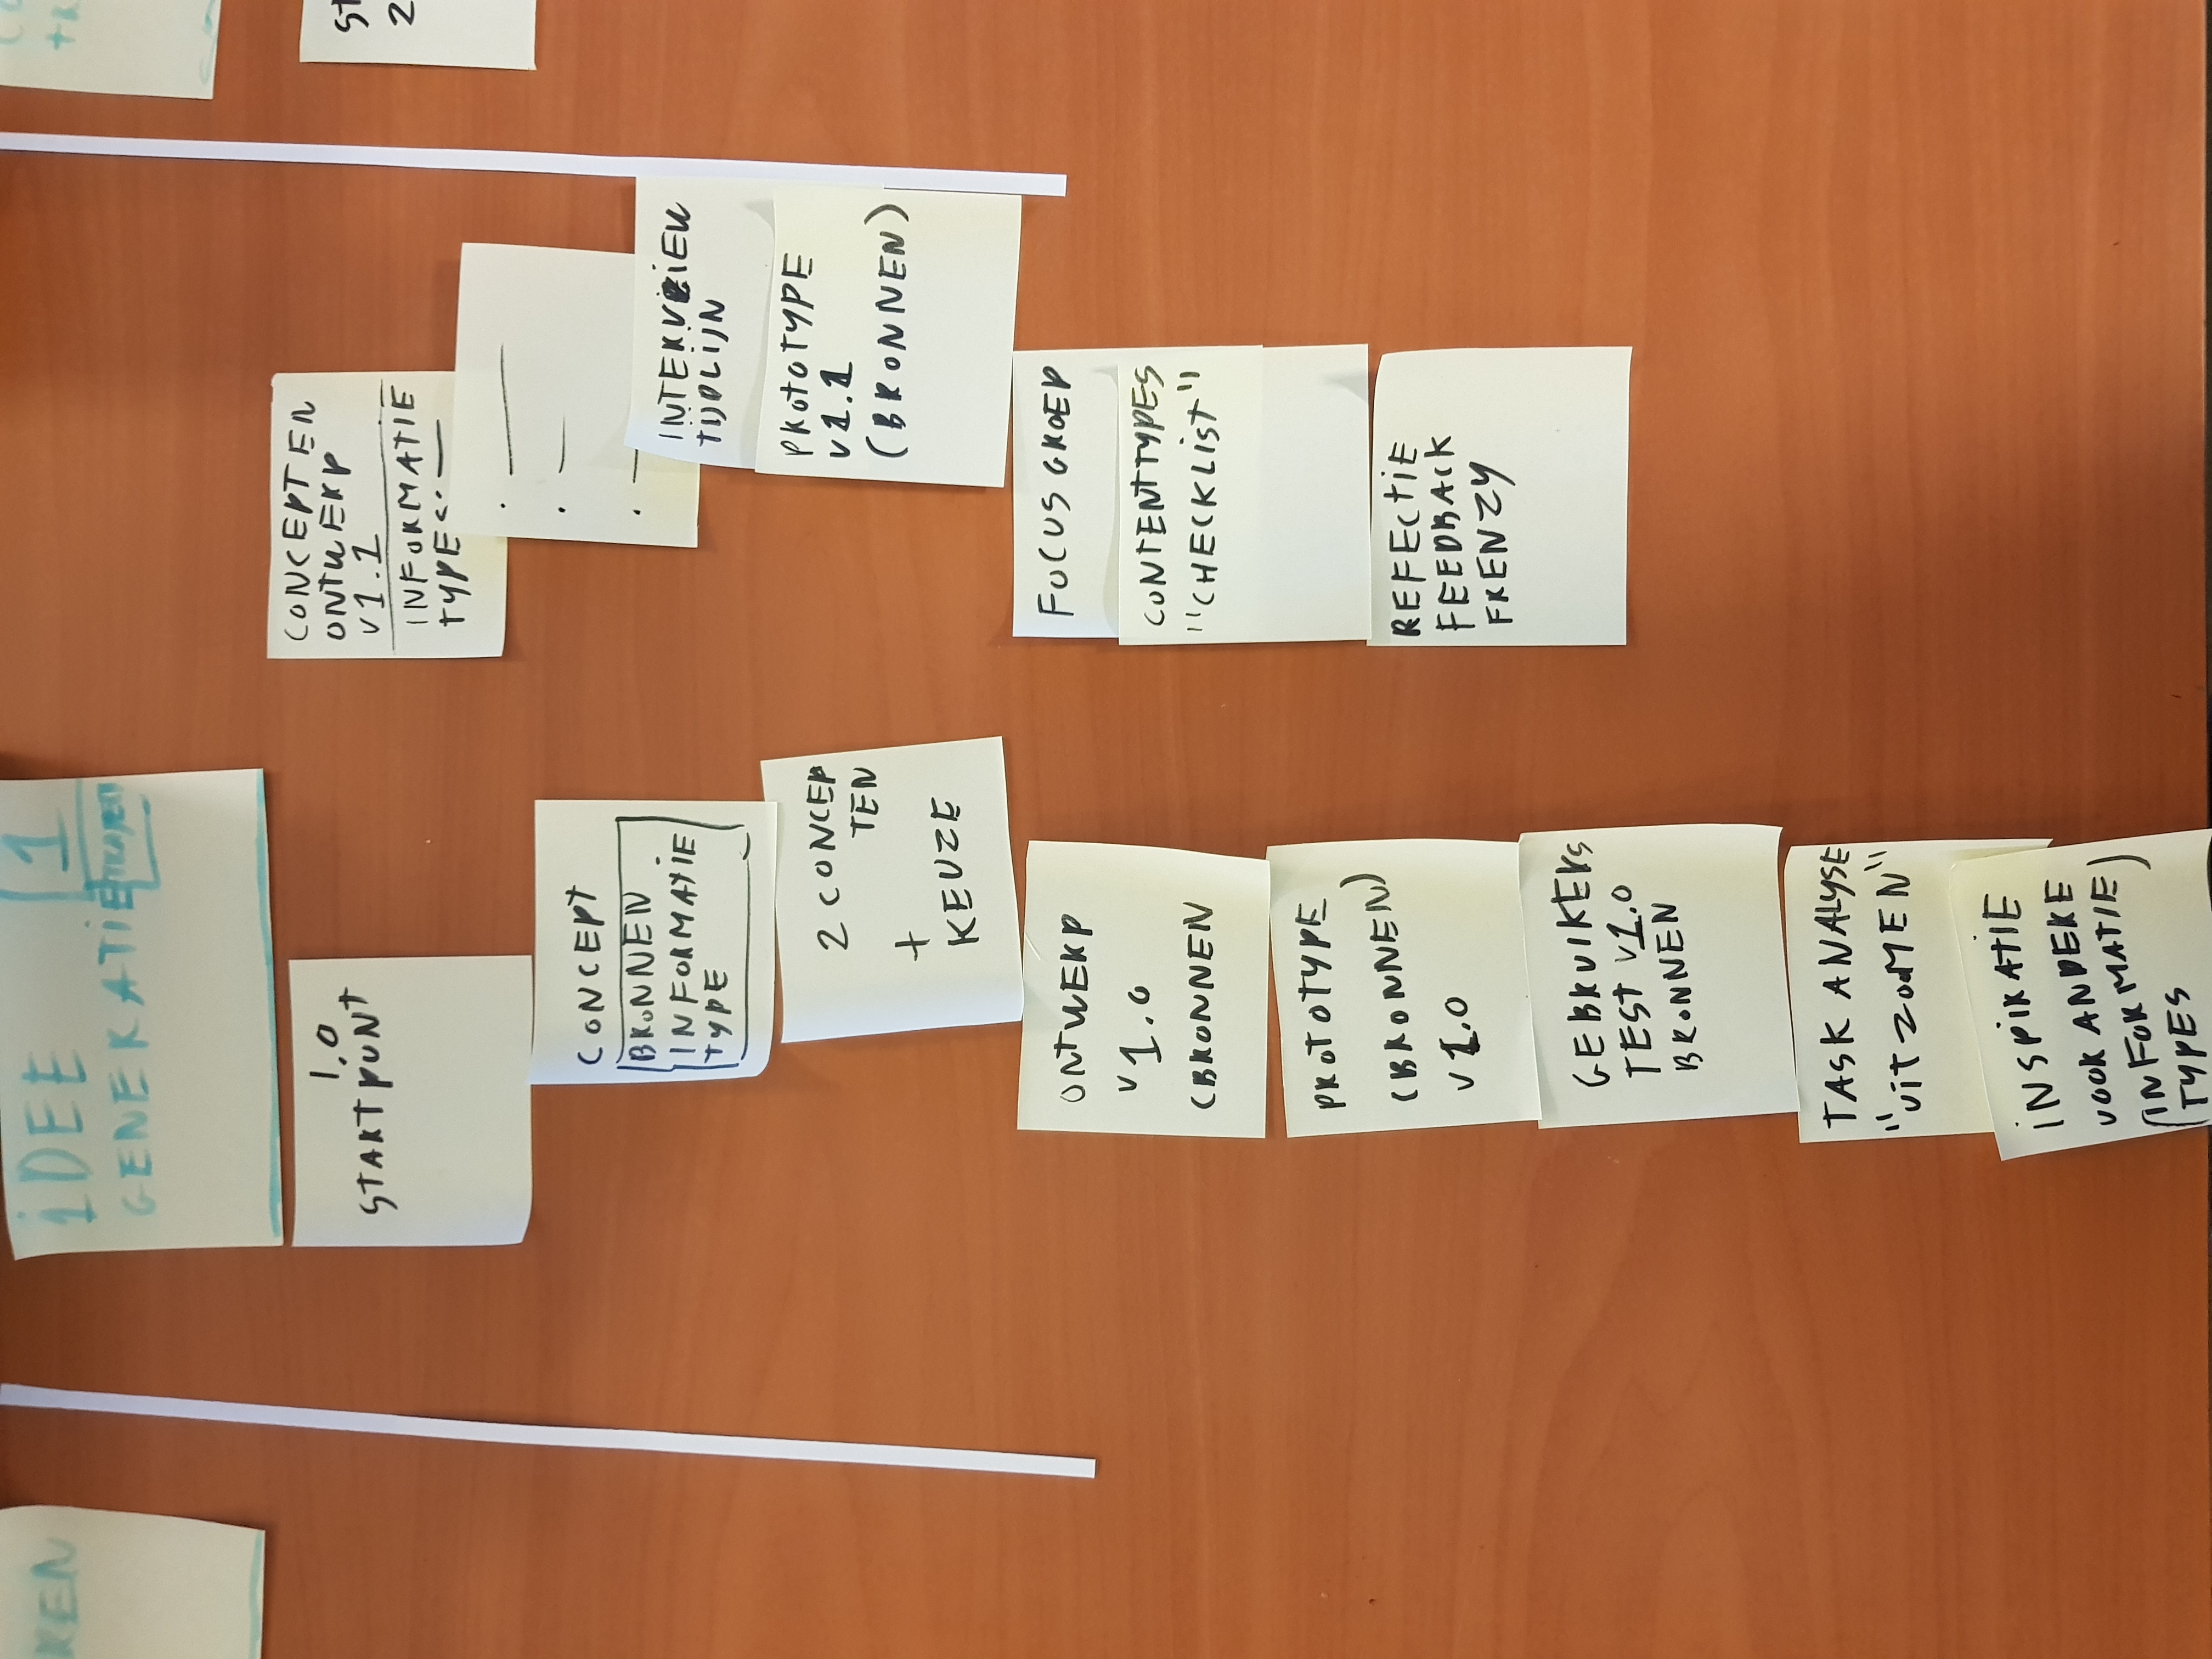 KEN
iDEE
GENERATIE
1
1.0
STARTPUNT
CONCEPT
BRONNEN
INFORMATIE
TYPE
2 CONCEP
TEN
+
KEUZE
ONTWERP
v1.0
(BRONNEN
PROTOTYPE
(BRONNEN)
v1.0
GEBRUIKERS
TEST v1.0
BRONNEN
TASK ANALYSE
"UiTZOOMEN"
iNSPiRATiE
VOOR ANDERE
(INFORMATIE)
TYPES
CONCEPT EN
ONTWERP
v1.1
INFORMATIE
TYPES
INTERVIEW
TIJDLIJN
PROTOTYPE
v1.1
(BRONNEN)
FOCUS GROEP
CONTENTTYPES
"CHECKLIST"
REFECTIE
FEEDBACK
FRENZY
ST
2